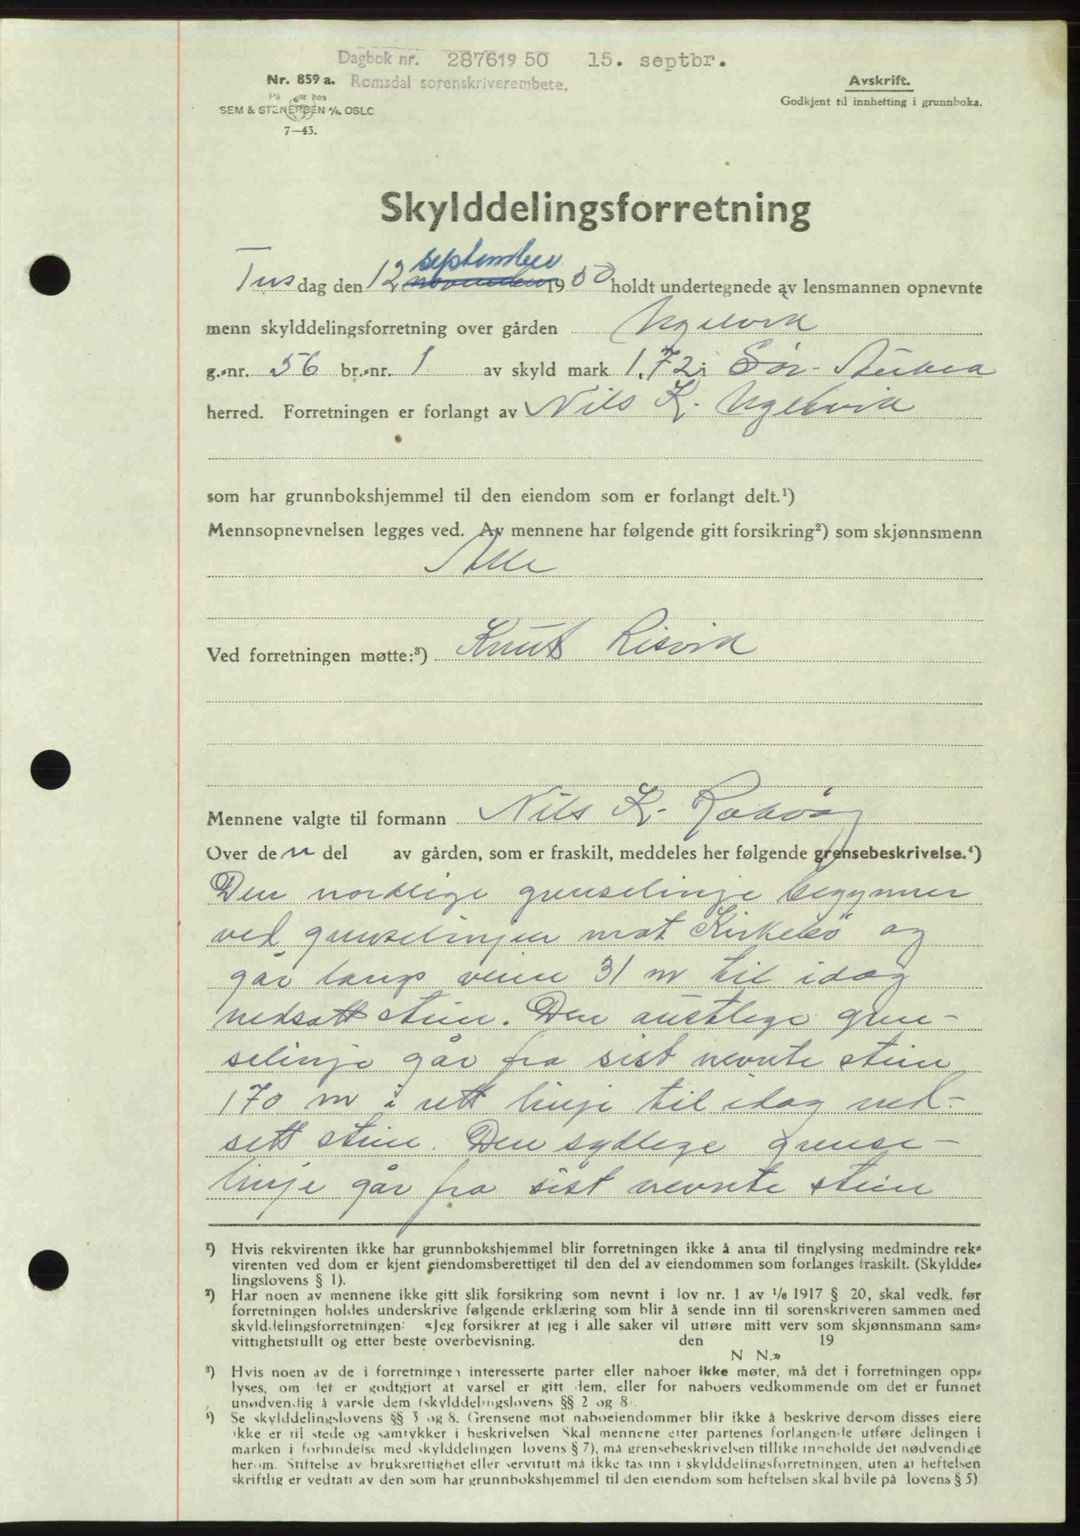 Dagbok nr. 2876 19 50 15. septbr.
Romsdal sorenskriverembete.
Nr. 859 a.
SEM & STENERSEN A/S, OSLO
7—43.
Avskrift.
Godkjent til innhefting i grunnboka.
Skylddelingsforretning
Tirsdag den 12 november september 1950 holdt undertegnede av lensmannen opnevnte
menn skylddelingsforretning over gården Ugelvik
g.-nr. 56 br.-nr. 1 av skyld mark 1,72 i Sør-Aukra
herred. Forretningen er forlangt av Nils K. Ugelvik
som har grunnbokshjemmel til den eiendom som er forlangt delt.¹)
Mennsopnevnelsen legges ved. Av mennene har følgende gitt forsikring²) som skjønnsmenn
Alle
Ved forretningen møtte:³) Knut Risvik
Mennene valgte til formann Nils K. Rakvåg
Over den del av gården, som er fraskilt, meddeles her følgende grensebeskrivelse.⁴)
Den nordlige grenselinje begynner
ved grenselinjen mot Kirkebø og
går langs veien 31 m til idag
nedsatt stein. Den austlege gren-
selinje går fra sist nevnte stein
170 m i rett linje til idag ned-
sett stein. Den sydlege grense-
linje går fra sist nevnte stein
¹) Hvis rekvirenten ikke har grunnbokshjemmel blir forretningen ikke å anta til tinglysing medmindre rek-
virenten ved dom er kjent eiendomsberettiget til den del av eiendommen som forlanges fraskilt. (Skyldde-
lingslovens § 1).
²) Har noen av mennene ikke gitt slik forsikring som nevnt i lov nr. 1 av 1/6 1917 § 20, skal vedk. før
forretningen holdes underskrive følgende erklæring som blir å sende inn til sorenskriveren sammen med
skylddelingsforretningen: «Jeg forsikrer at jeg i alle saker vil utføre mitt verv som skjønnsmann sam-
vittighetsfullt og etter beste overbevisning. den 19
N N.»
³) Hvis noen av de i forretningen interesserte parter eller naboer ikke møter, må det i forretningen opp-
lyses, om det er godtgjort at varsel er gitt dem, eller for naboers vedkommende om det er funnet
unødvendig å varsle dem (skylddelingslovens §§ 2 og 8.
⁴) Se skylddelingslovens §§ 3 og 8. Grensene mot naboeiendommer blir ikke å beskrive dersom disses eiere
ikke er til stede og samtykker i beskrivelsen Skal mennene etter partenes forlangende utføre delingen i
marken i forbindelse med skylddelingen lovens § 7), må grensebeskrivelsen tillike inneholde det nødvendige
herom. Stiftelse av bruksrettighet eller servitutt må ikke tas inn i skylddelingsforretningen, uten at heftelsen
skriftlig er vedtatt av den som har grunnbokshjemmel til den eiendom som heftelsen skal hvile på lovens § 5)